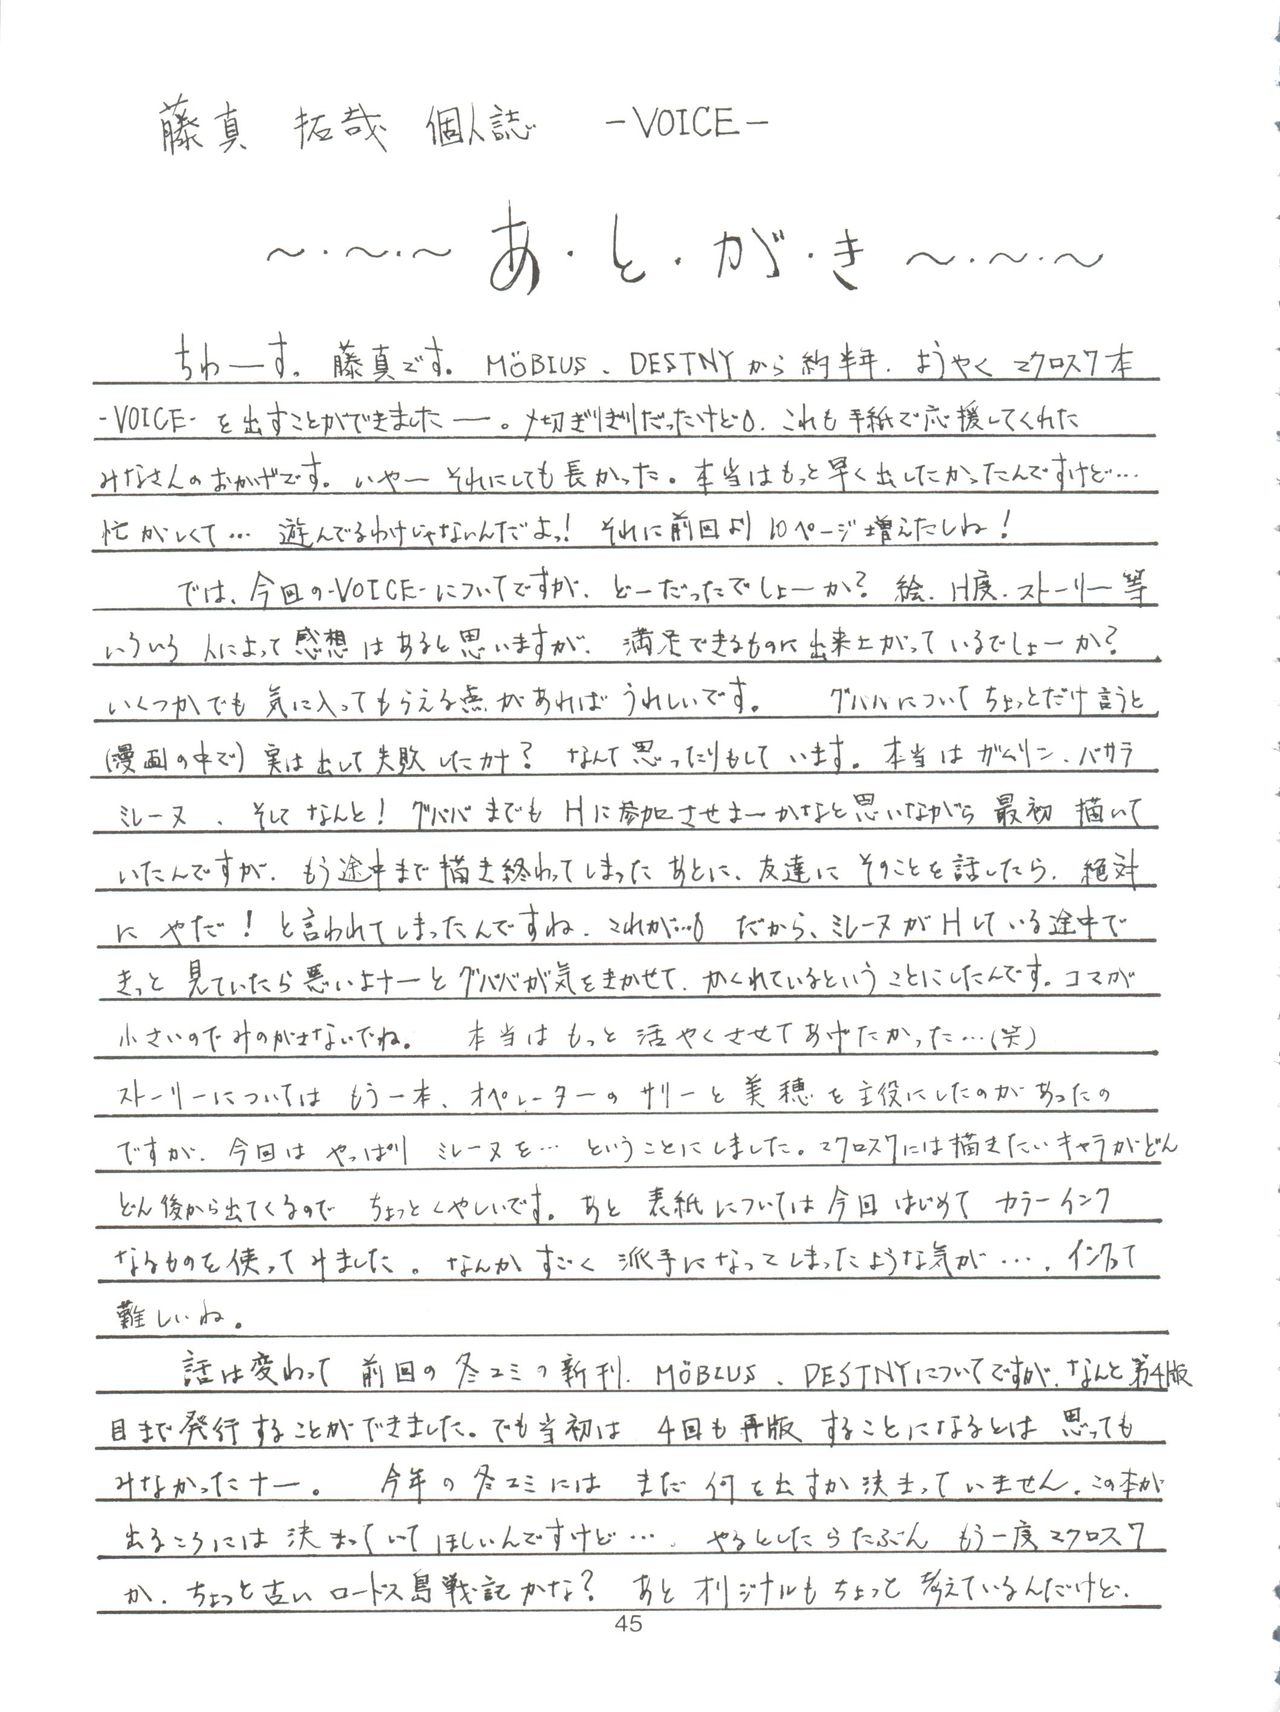 藤真 拓哉 個人誌 -VOICE-
～・～・～ あ・と・が・き ～・～・～
ちわーす。藤真です。MÖBIUS、DESTNYから約半年、ようやくマクロス7本
-VOICE-を出すことができましたー。〆切ぎりぎりだったけど。これも手紙で応援してくれた
みなさんのおかげです。いやーそれにしても長かった。本当はもっと早く出したかったんですけど…
忙がしくて… 遊んでるわけじゃないんだよっ! それに前回より10ページ増えたしね!
では、今回の-VOICE-についてですが、どーだったでしょーか? 絵、H度、ストーリー等
いろいろ人によって感想はあると思いますが、満足できるものに出来上がっているでしょーか?
いくつかでも気に入ってもらえる点があればうれしいです。 グババについてちょっとだけ言うと
(漫画の中で)実は出して失敗したカナ? なんて思ったりもしています。本当はガムリン、バサラ
ミレーヌ、そしてなんと! グババまでもHに参加させよーかなと思いながら最初描いて
いたんですが、もう途中まで描き終わってしまったあとに、友達にそのことを話したら、絶対
にやだ! と言われてしまったんですね、これが… だから、ミレーヌがHしている途中で
きっと見ていたら悪いよナーとグババが気をきかせて、かくれているということにしたんです。コマが
小さいのでみのがさないでね。 本当はもっと活やくさせてあげたかった…(笑)
ストーリーについてはもう一本、オペレーターのサリーと美穂を主役にしたのがあったの
ですが、今回はやっぱりミレーヌを…ということにしました。マクロス7には描きたいキャラがどん
どん後から出てくるのでちょっとくやしいです。あと表紙については今回はじめてカラーインク
なるものを使ってみました。なんかすごく派手になってしまったような気が…、インクって
難しいね。
話は変わって前回の冬コミの新刊、MÖBIUS、DESTNYについてですが、なんと第4版
目まで発行することができました。でも当初は4回も再版することになるとは思っても
みなかったナー。 今年の冬コミにはまだ何を出すか決まっていません。この本が
出るころには決まっていてほしいんですけど…、やるとしたらたぶんもう一度マクロス7
か、ちょっと古いロードス島戦記かな? あとオリジナルもちょっと考えているんだけど、
45